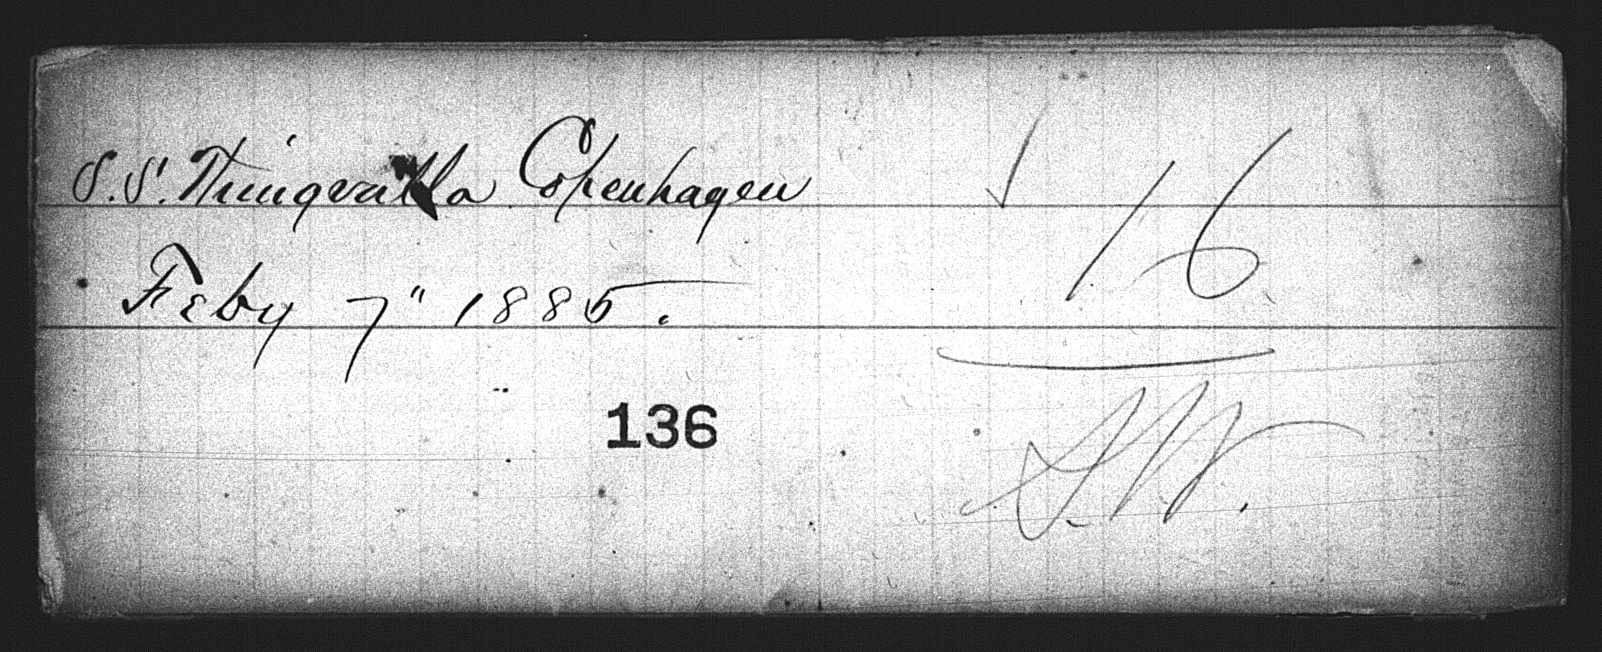 S.S. Thingvalla Copenhagen
Feby 7" 1885.
16
136